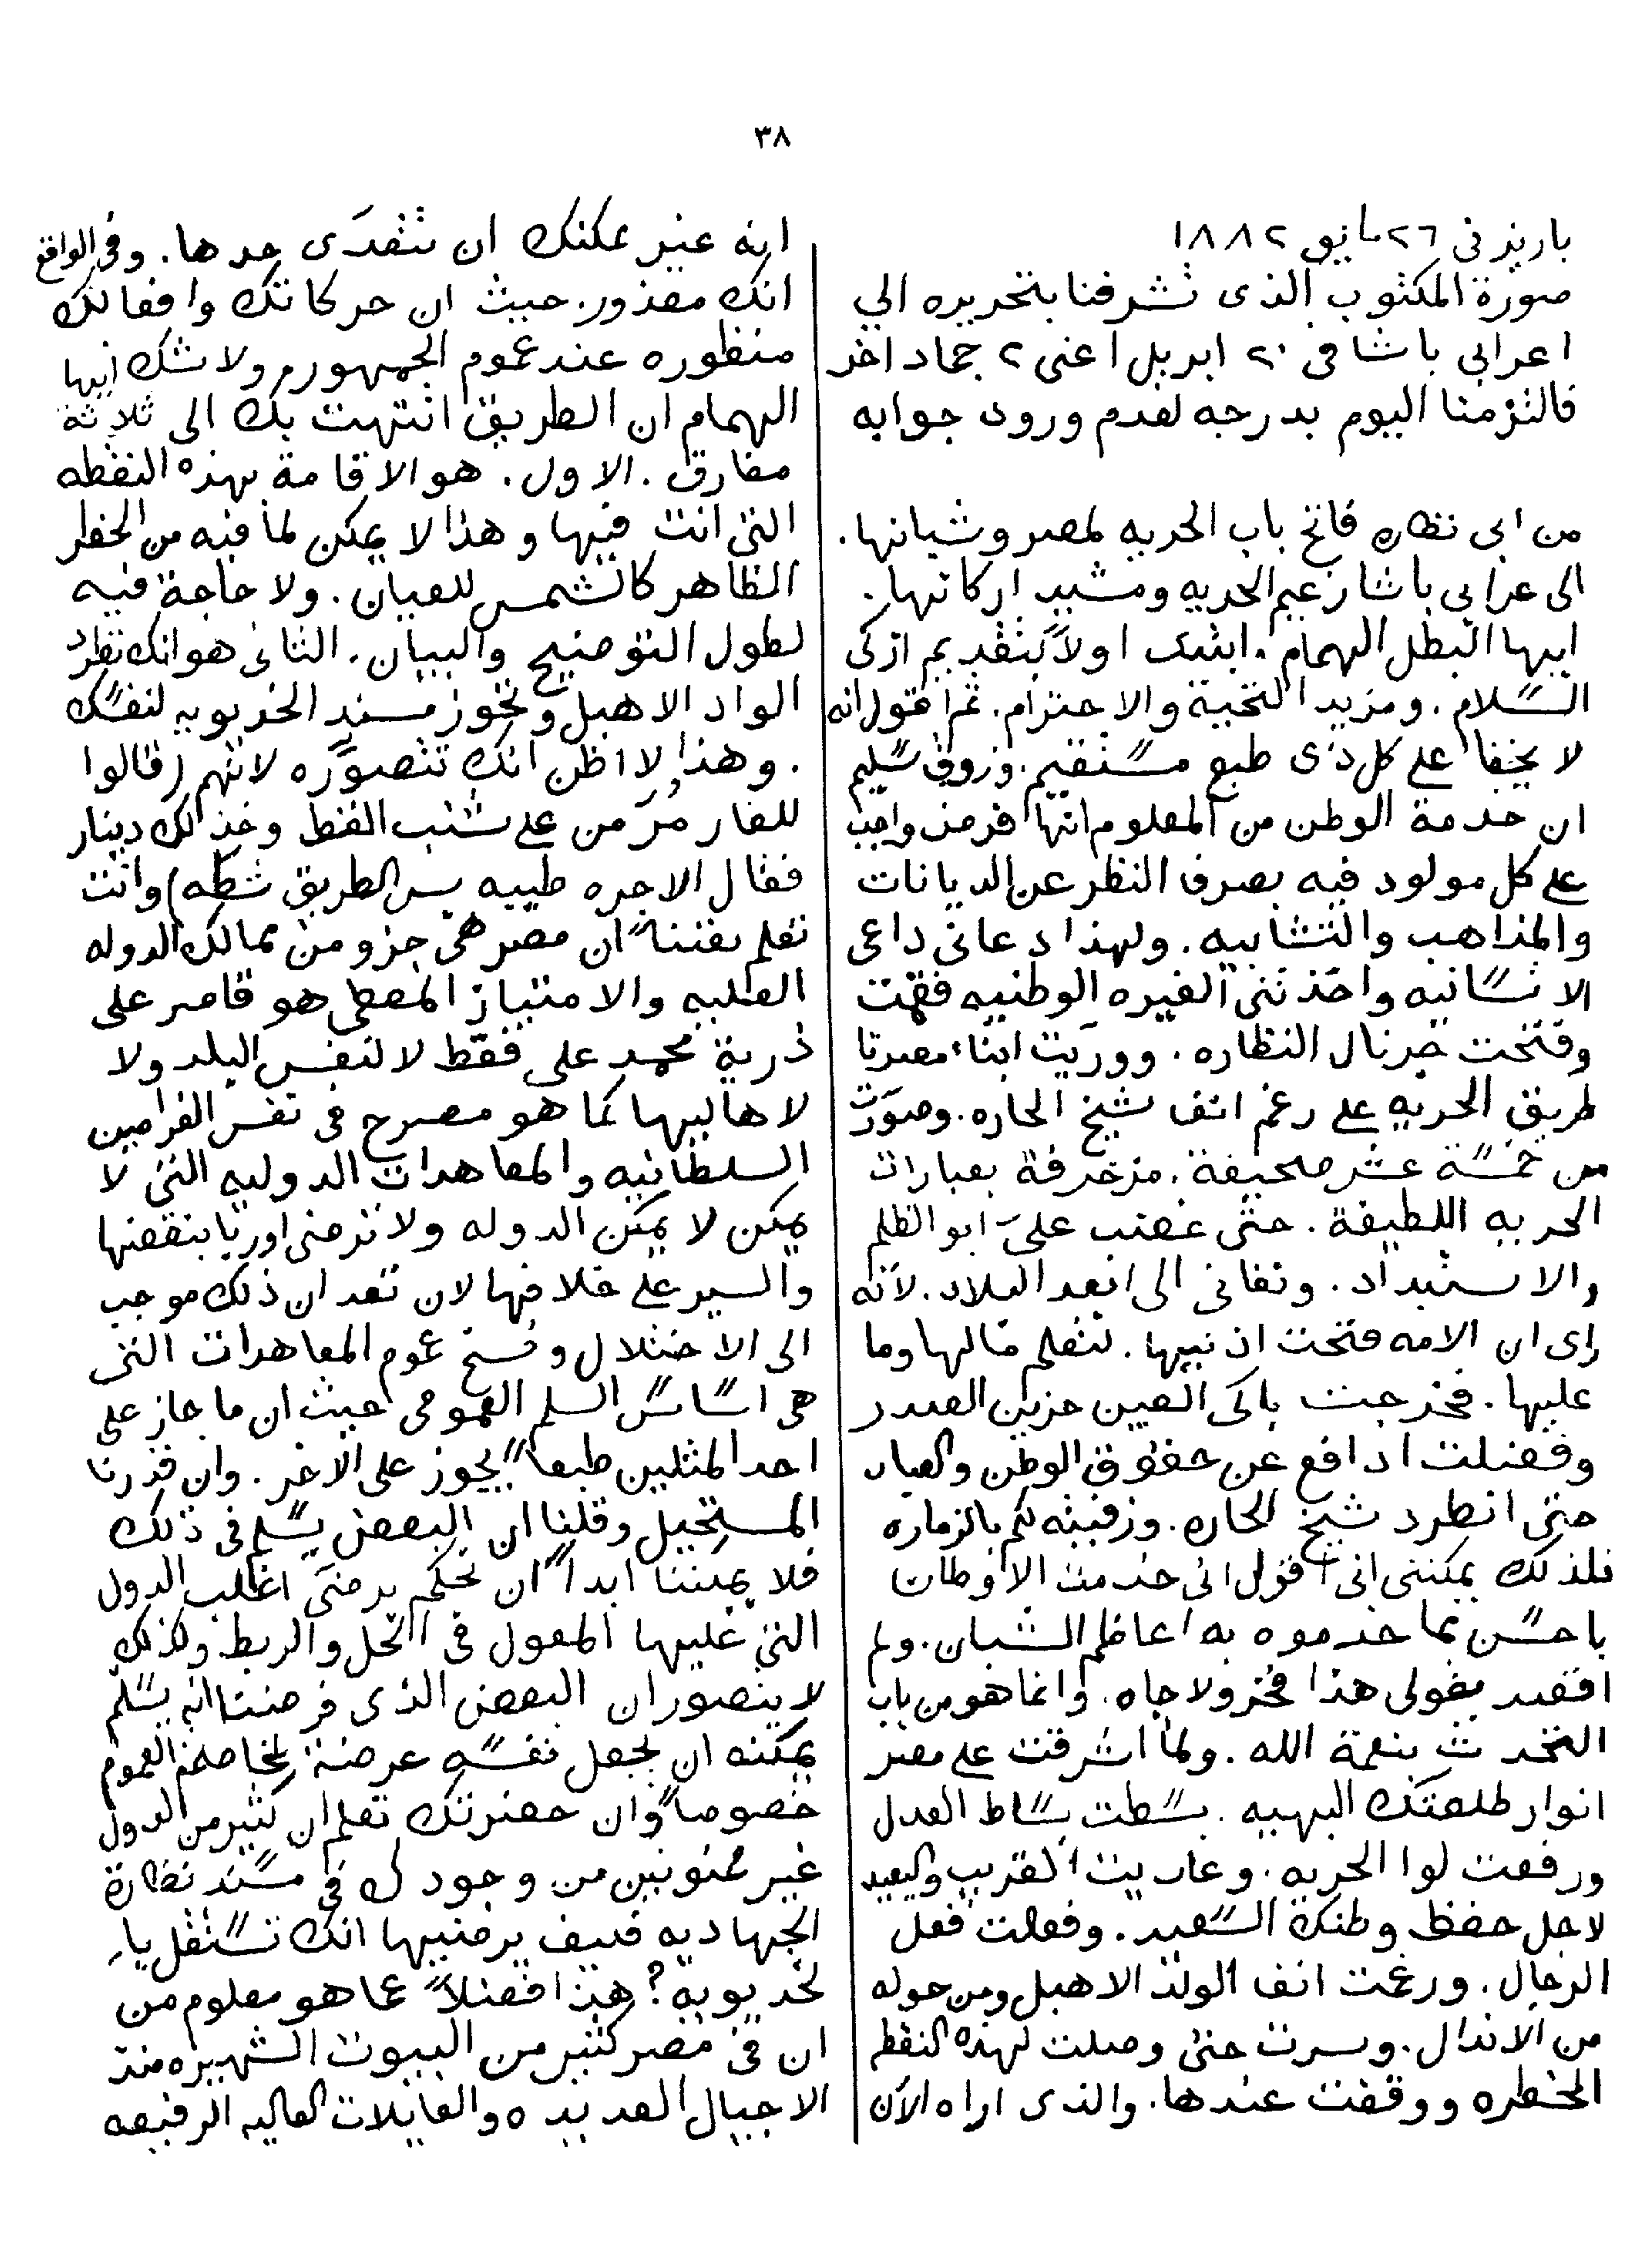 ٣٨
باريز في ٢٦ مايو ١٨٨٢
صورة المكتوب الذى تشرفنا بتحريره الي
اعرابي باشا فى ٢٠ ابريل اعنى ٢ جماد اخر
فالتزمنا اليوم بدرجه لعدم ورود جوابه
من ابى نظاره فاتح باب الحريه لمصر وشبانها.
الى عرابي باشا زعيم الحريه ومشيد اركانها.
ايها البطل الهمام. ابتدى اولاً بتقديم ازكى
السلام. ومزيد التحية والاحترام. ثم اقول انه
لا يخفا على كل ذى طبع مستقيم. وذوق سليم
ان خدمة الوطن من المعلوم انها فرض واجب
على كل مولود فيه بصرف النظر عن الديانات
والمذاهب والتشابيه. ولهذا دعانى داعى
الانسانيه واخذتنى الغيره الوطنيه فقمت
وفتحت جرنال النظاره. ووريت ابناء مصرنا
طريق الحريه على رغم انف شيخ الحاره. وصوّرت
من خمسة عشر صحيفة. مزخرفة بعبارات
الحريه اللطيفة. حتى غضب علىّ ابو الظلم
والاستبداد. ونفانى الى ابعد البلاد. لانه
راى ان الامه فتحت اذنيها. لتعلم مالها وما
عليها. فخرجت باكى العين حزين الصدر
وفضلت ادافع عن حقوق الوطن والعباد
حتى انطرد شيخ الحاره. وزفيته لكم بالزماره
فلذلك يمكننى انى اقول انى خدمت الاوطان
باحسن مما خدموه به اعاظم الشبان. ولم
اقصد بقولى هذا فخر ولا جاه. وانما هو من باب
التحدث بنعمة الله. ولما اشرقت على مصر
انوار طلعتك البهيه. بسطت بساط العدل
ورفعت لوا الحريه. وعاديت القريب والبعيد
لاجل حفظ وطنك السعيد. وفعلت فعل
الرجال. ورغمت انف الولد الاهبل ومن حوله
من الاندال. وسرت حتى وصلت لهذه النقطه
الخطره ووقفت عندها. والذى اراه الآن
انه غير يمكنك ان تتعدّى حدها. وفى الواقع
انك معذور. حيث ان حركاتك وافعالك
منظوره عند عموم الجمهور. ولا شك ايها
الهمام ان الطريق انتهت بك الى ثلاثة
مفارق. الاول. هو الاقامة بهذه النقطه
التى انت فيها وهذا لا يمكن لما فيه من الخطر
الظاهر كالشمس للعيان. ولا حاجة فيه
لطول التوضيح والبيان. الثانى هو انك تطرد
الواد الاهبل وتحوز مسند الخديويه لنفسك
. وهذا لا اظن انك تتصوّره لانهم (قالوا
للفار مُرّ من على شنب القط وخذ لك دينار
فقال الاجره طيبه بس الطريق شطه) وانت
تعلم يقيناً ان مصر هى جزو من ممالك الدوله
العليه والامتياز المعطى هو قاصر على
ذرية محمد على فقط لا لنفس البلد ولا
لاهاليها كما هو مصرح فى نفس الفرامين
السلطانيه والمعاهدات الدوليه التى لا
يمكن لا يمكن الدوله ولا ترضى اوربا بنقضها
والسير على خلافها لان تعد ان ذلك موجب
الى الاختلال وفسخ عموم المعاهدات التى
هى اساس السلم العمومى حيث ان ما جاز على
احد المثلين طبعاً يجوز على الآخر. وان قدرنا
المستحيل وقلنا ان البعض يسلم فى ذلك
فلا يمكننا ابداً ان نحكم برضى اغلب الدول
التى عليها المعول فى الحل والربط ولذلك
لا يتصور ان البعض الذى فرضنا انه يسلّم
يمكنه ان يجعل نفسه عرضة لمخاصمة العموم
خصوصاً وان حضرتك تعلم ان كثير من الدول
غير ممنونين من وجودك فى مسند نظارة
الجهاديه فكيف يرضيها انك تستقل با
لخديويه؟ هذا فضلاً عما هو معلوم من
ان فى مصر كثير من البيوت الشهيره منذ
الاجيال العديده والعايلات العاليه الرفيعه